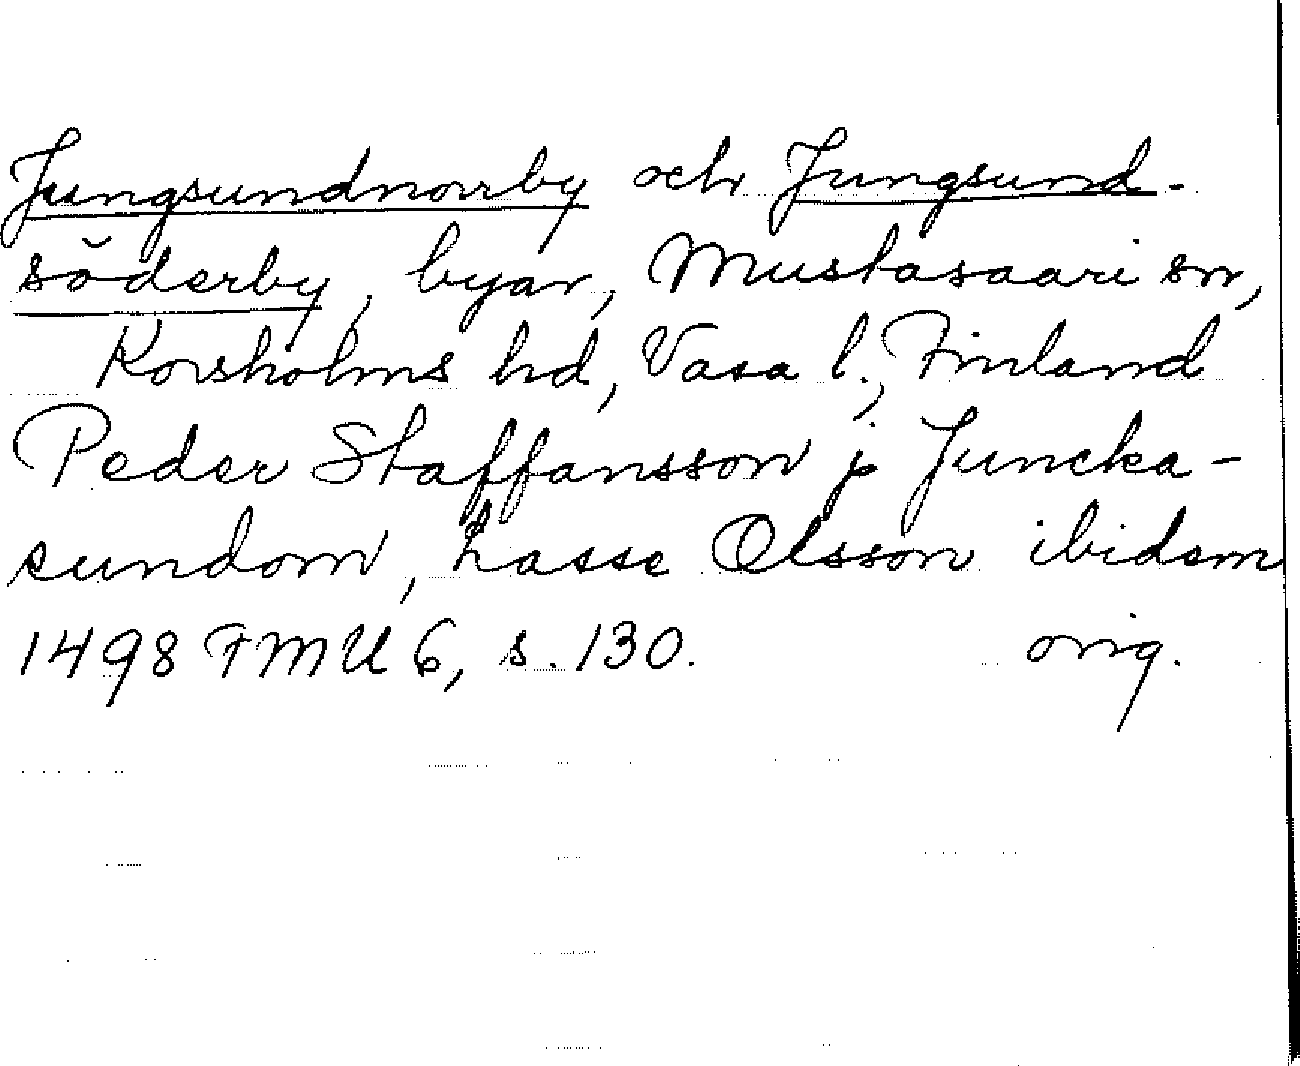 Jungsundnorrby och Jungsund-
söderby, byar, Mustasaari sn,
Korsholms hd, Vasa l., Finland
Peder Staffansson j Juncka-
sundom, Lasse Olsson ibidem
1498 FMU 6, s. 130. orig.